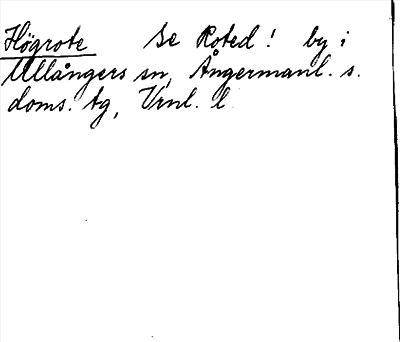 Högrote Se Roted! by i
Ullångers sn, Ångermanl. s.
doms. tg, Vrnl. l